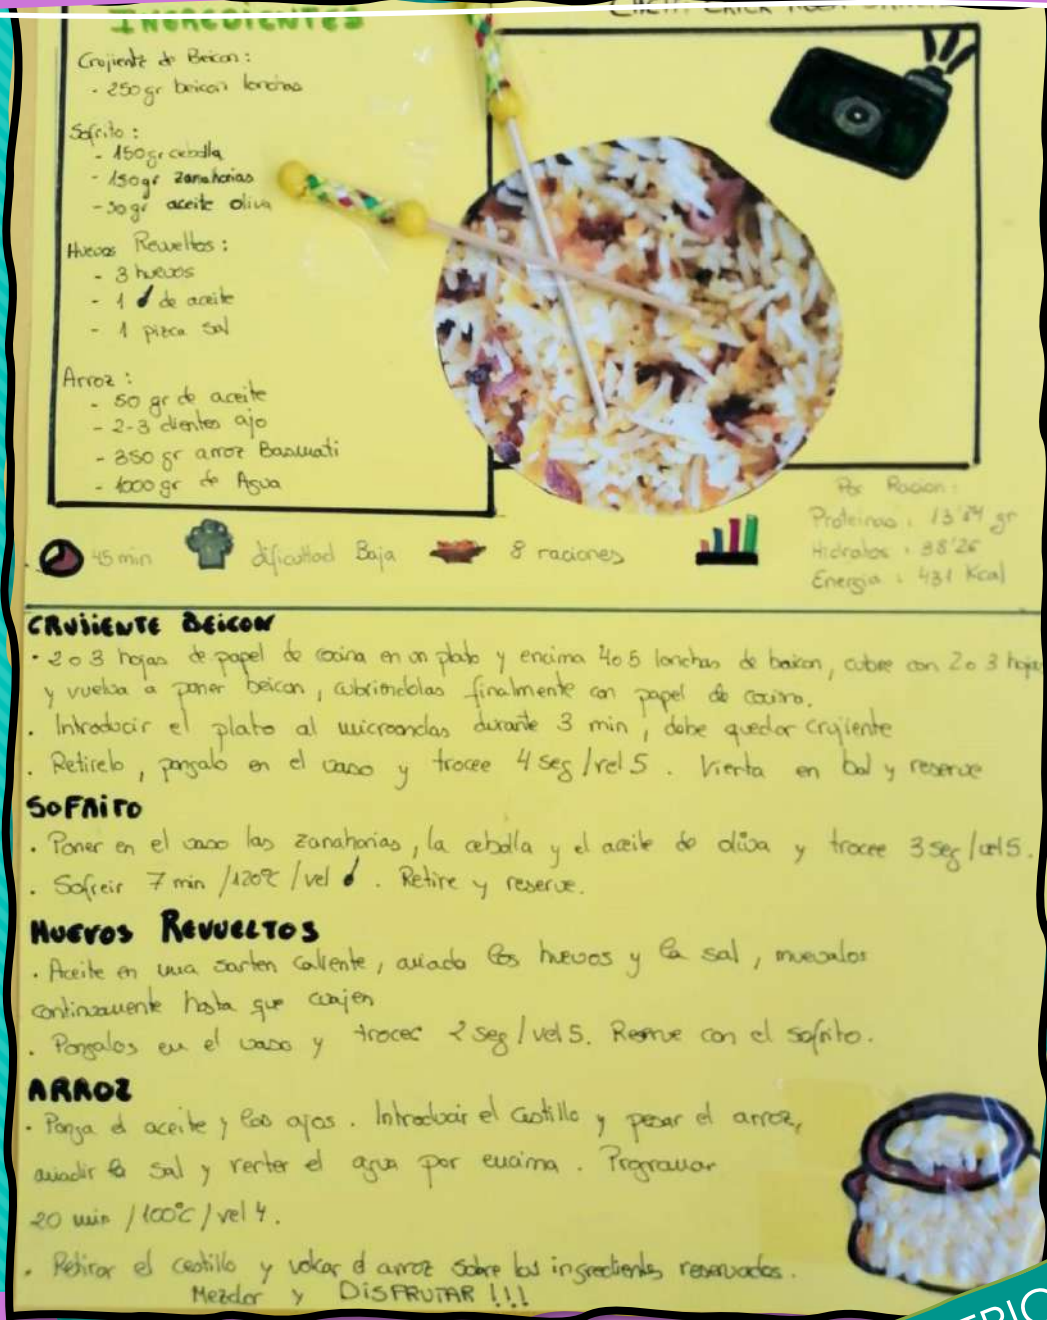 INGREDIENTES
Crujiente de Beicon:
- 250gr beicon lonchas
Sofrito:
- 150gr cebolla
- 150gr zanahorias
- 50gr aceite oliva
Huevos Revueltos:
- 3 huevos
- 1 de aceite
- 1 pizca sal
Arroz:
- 50 gr de aceite
- 2-3 dientes ajo
- 350 gr arroz Basmati
- 1000 gr de Agua
Por Racion:
Proteinas: 13'14 gr
Hidratos: 38'26
Energia: 431 Kcal
45 min dificultad Baja 8 raciones
CRUJIENTE BEICON
. 2 o 3 hojas de papel de cocina en un plato y encima 4 o 5 lonchas de baicon, cubre con 2 o 3 hojas
y vuelva a poner beicon, cubriendolas finalmente con papel de cocina.
. Introducir el plato al microondas durante 3 min, debe quedar crujiente
. Retirelo, pongalo en el vaso y trocee 4 seg/vel 5. Vierta en bol y reserve
SOFRITO
. Poner en el vaso las zanahorias, la cebolla y el aceite de oliva y trocee 3 seg/vel 5.
. Sofreir 7 min /120ºC /vel . Retire y reserve.
HUEVOS REVUELTOS
. Aceite en una sarten caliente, añada los huevos y la sal, muevalos
continuamente hasta que cuajen
. Pongalos en el vaso y trocee 2 seg/vel 5. Reserve con el sofrito.
ARROZ
. Ponga el aceite y los ajos. Introducir el cestillo y pesar el arroz,
añadir la sal y verter el agua por encima. Programar
20 min /100ºC / vel 4.
. Retirar el cestillo y volcar el arroz sobre los ingredientes reservados.
Mezclar y DISFRUTAR !!!